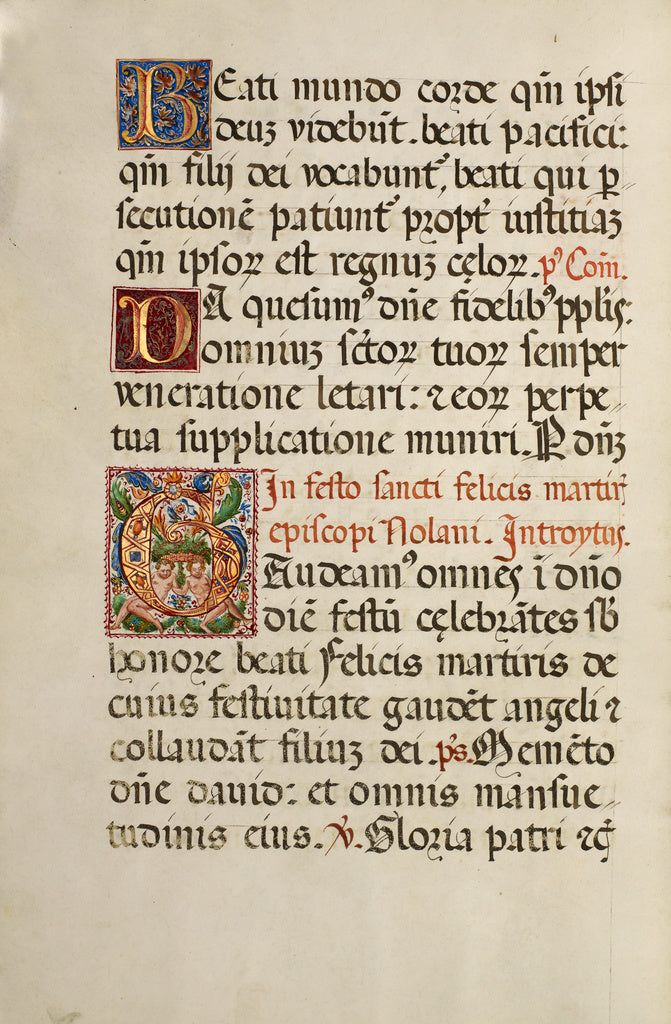 Beati mundo corde qm̄ ipsi
deuꝫ videbūt. beati pacifici:
qm̄ filij dei vocabuntʳ, beati qui ꝑ„
secutionē patiuntʳ ꝓptʳ iustitiaꝫ
qm̄ ipsoꝝ est regnuꝫ cęloꝝ. p' Com̄.
DA quesum' dn̄e fidelib' ppl̄is:
omniuꝫ sc̄toꝝ tuoꝝ semper
veneratione letari: ⁊ eoꝝ perpe„
tua supplicatione muniri. P dn̄ꝫ
In festo sancti felicis martir̄
episcopi Nolani. Introytus.
GAudeam' omnes ī dn̄o
diē festū cęlebrātes sb̄
honore beati Felicis martiris de
cuius festiuitate gaudēt angeli ⁊
collaudāt filiuꝫ dei. ps. Memēto
dn̄e dauid: et omnis mansue„
tudinis eius. ℣. Gloria patri ⁊c̄